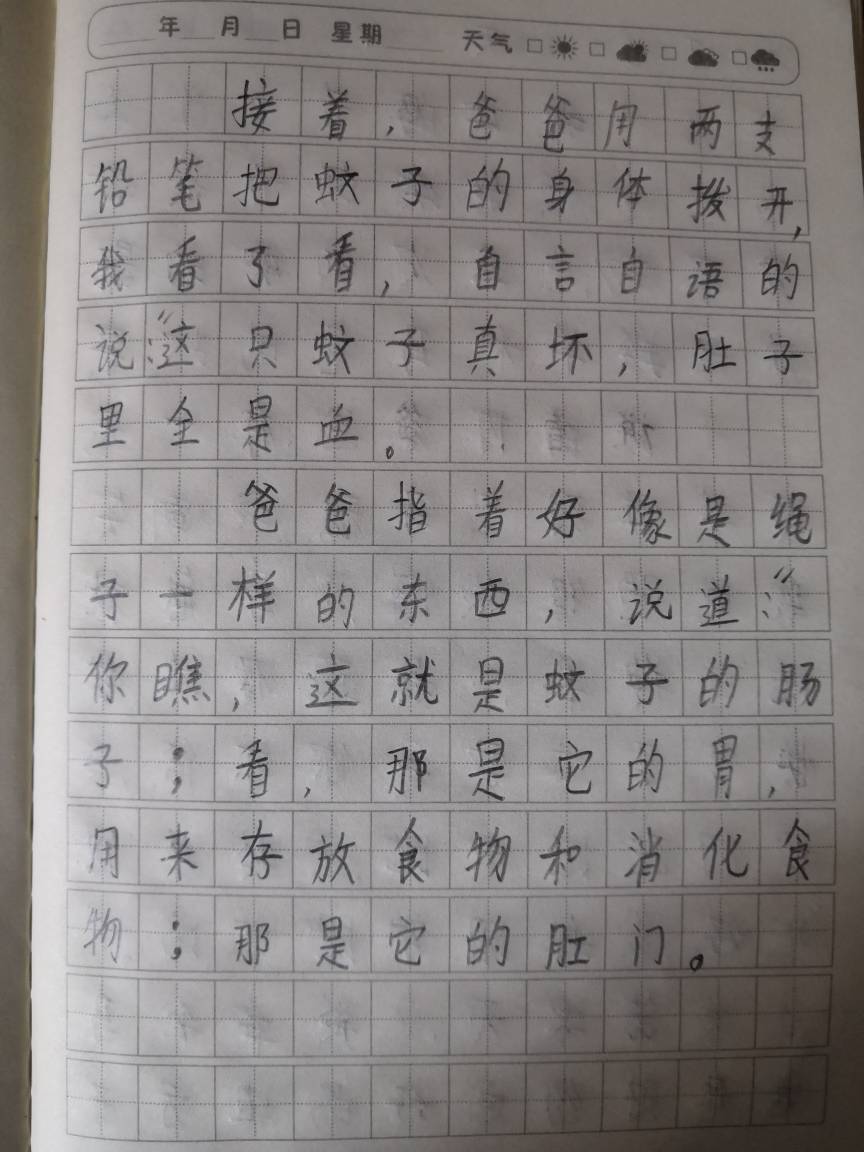 年 月 日 星期 天气
接着，爸爸用两支
铅笔把蚊子的身体拨开，
我看了看，自言自语的
说：“这只蚊子真坏，肚子
里全是血。
爸爸指着好像是绳
子一样的东西，说道：“
你瞧，这就是蚊子的肠
子；看，那是它的胃，
用来存放食物和消化食
物；那是它的肛门。